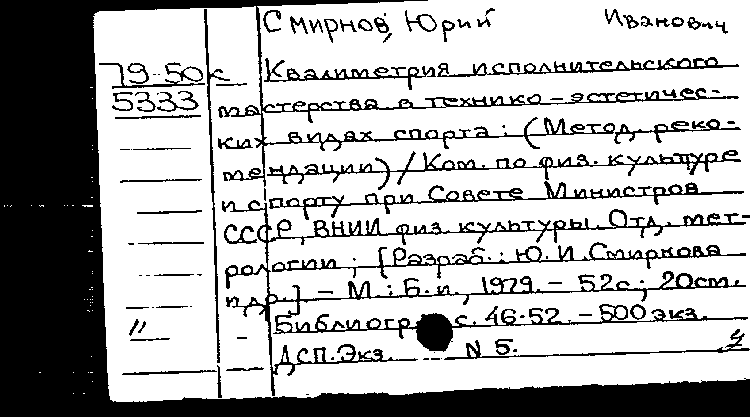 Смирнов, Юрий Иванович
79-50к Квалиметрия исполнительского
5333 мастерства в технико-эстетичес-
ких видах спорта: (Метод. реко-
мендации) / Ком. по физ. культуре
и спорту при Совете Министров
СССР, ВНИИ физ. культуры. Отд. мет-
рологии; [Разраб.: Ю. И. Смирнова
и др.] - М.: Б.и., 1979. - 52с.; 20см.
" - Библиогр. с. 46-52. - 500 экз.
ДСП. Экз. N 5.